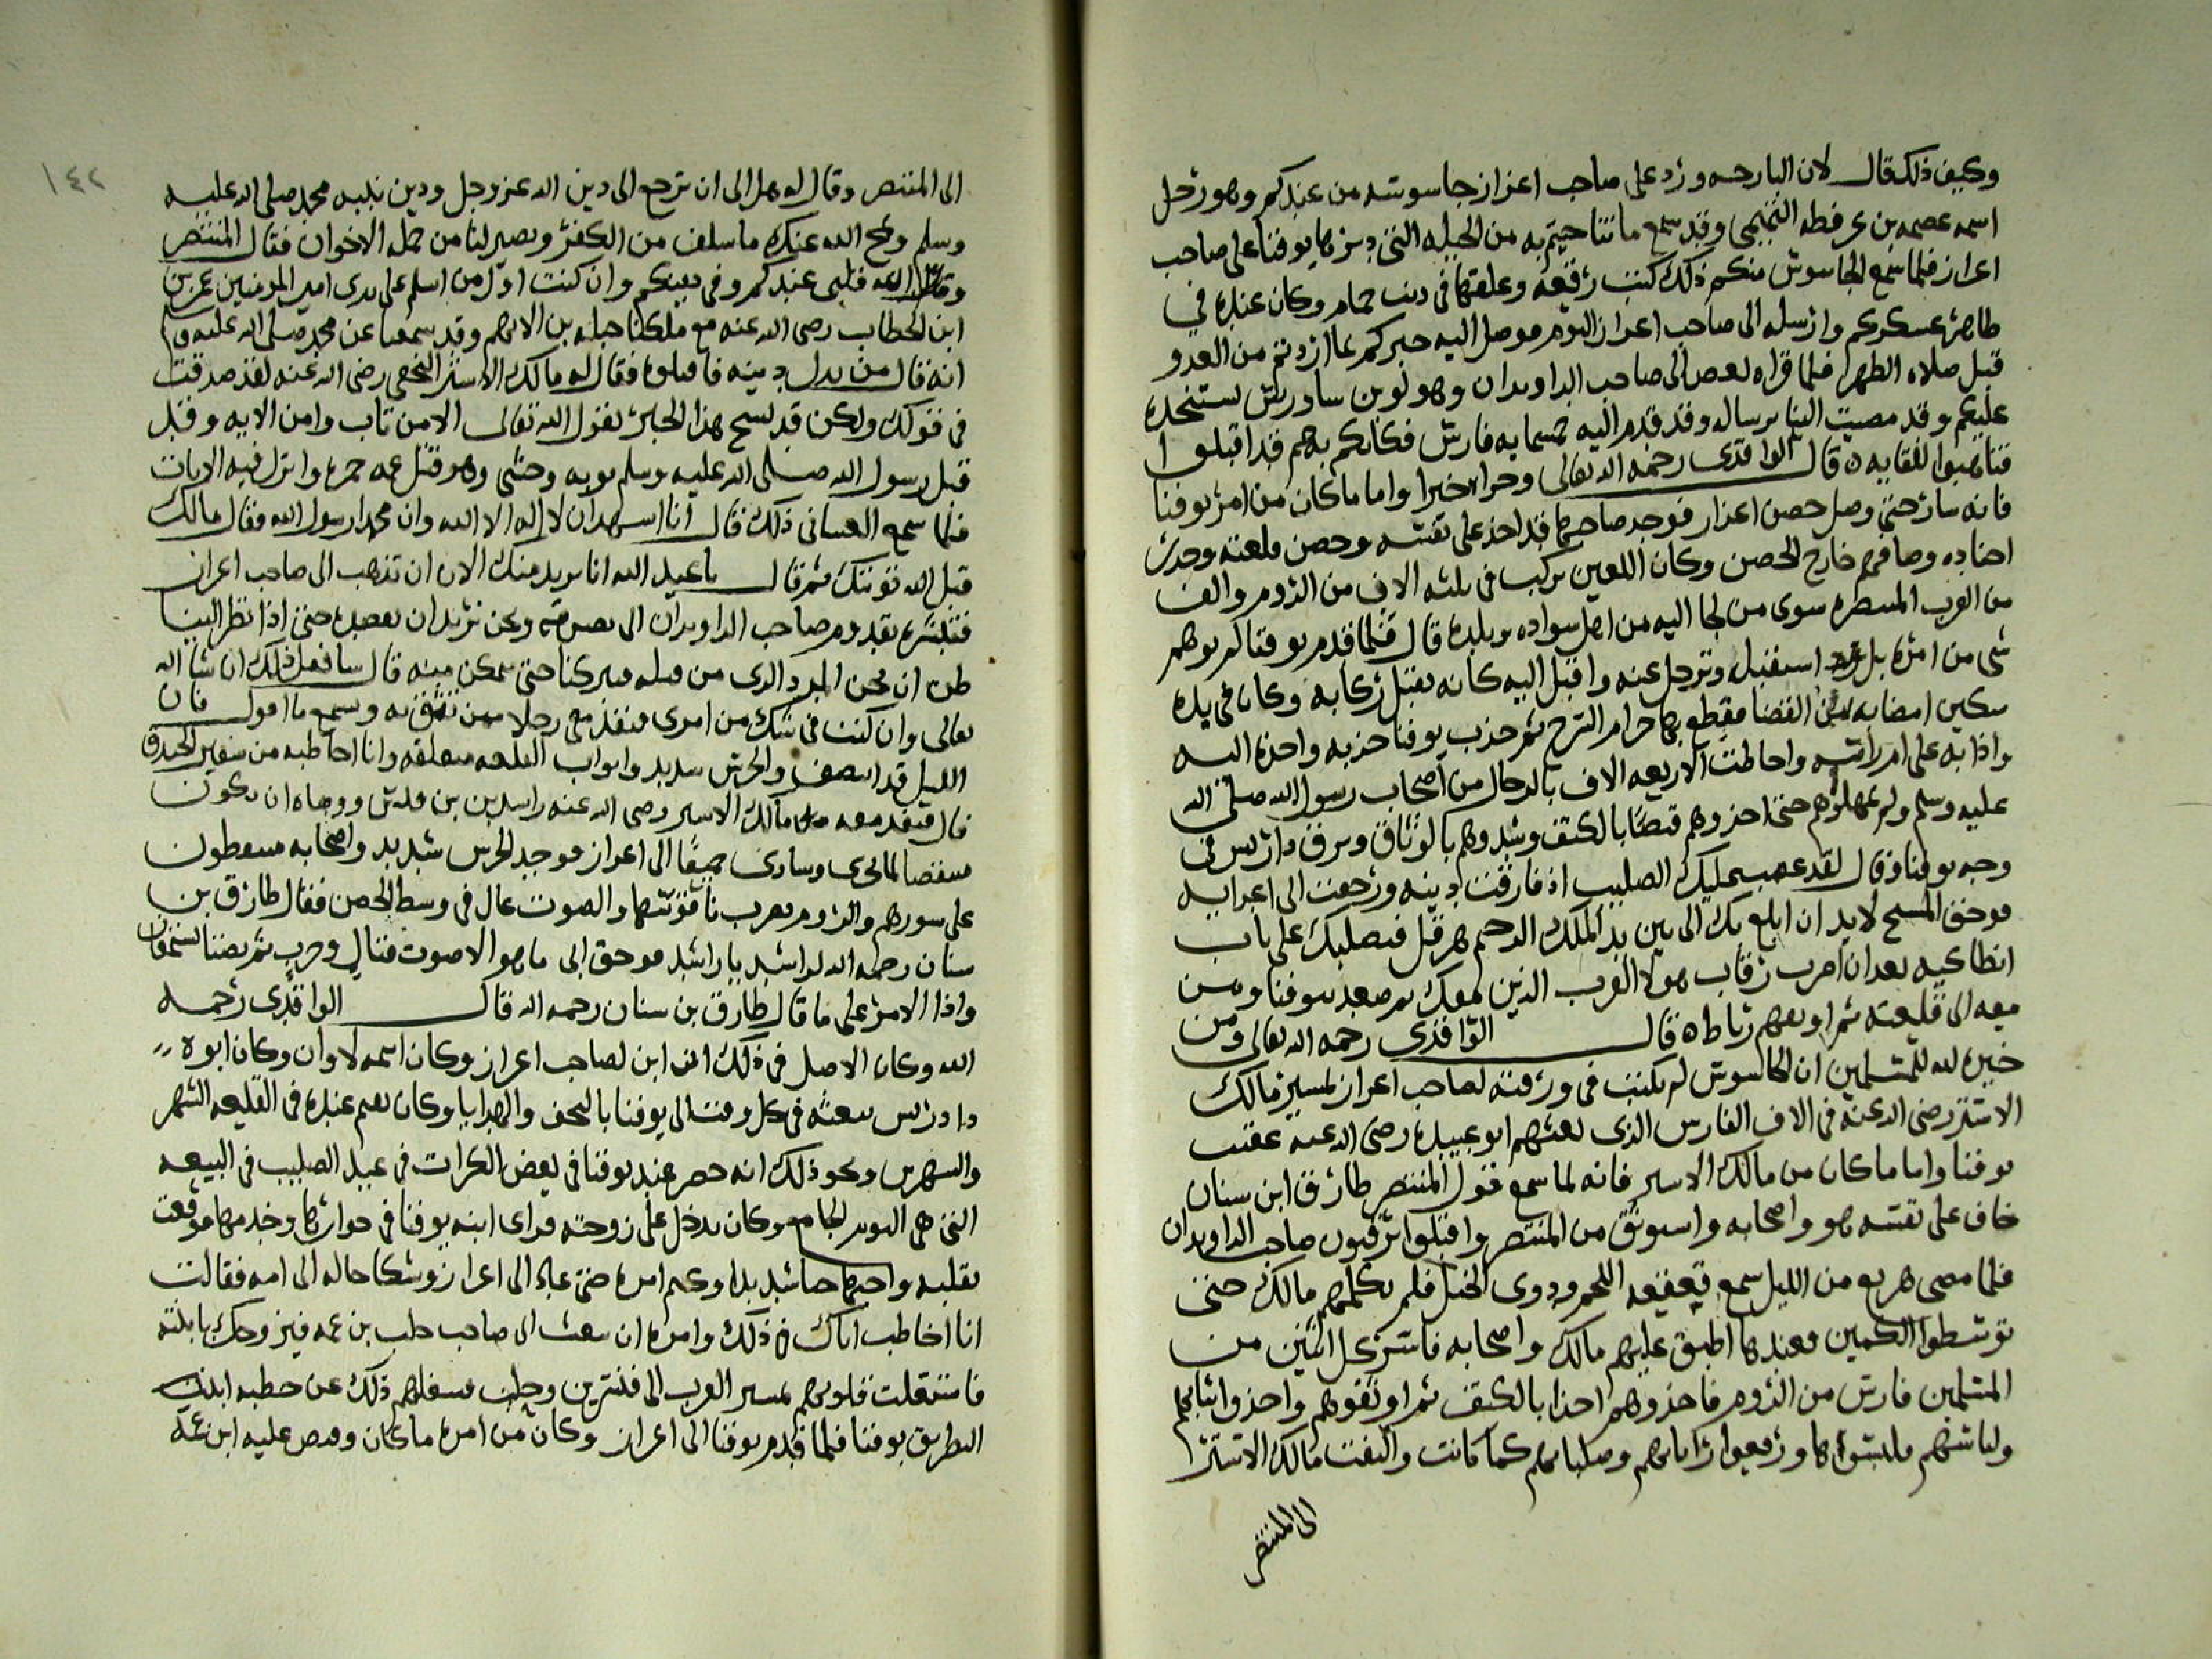 وكيف ذلك قال لان البارحه ورد على صاحب اعزاز جاسوسه من عندكم وهو رجل
اسمه عصمه بن عرفطه التجيبي وقد سمع ما تناجيتم به من الحيله التي دبرها يوقنا على صاحب
اعزاز فلما سمع الجاسوس منكم ذلك كتب رقعه وعلقها في ذنب حمام وكان عنده في
ظاهر عسكركم وارسله الى صاحب اعزاز اليوم فوصل اليه خبركم بما اردتم من الغدر
قبل صلاه الظهر فلما قراه بعض الى صاحب الراوندان وهو لوين ساورس يستنجده
عليكم وقد مضيت اليه برساله وقد قدم اليه خمسمايه فارس فكانكم بهم قد اقبلوا
فتاهبوا للقايه قال الواقدي رحمه الله تعالى وجزاه خيرا واما ما كان من امر يوقنا
فانه سار حتى وصل حصن اعزاز فوجد صاحبها قد اخذ على نفسه وحصن قلعته وجرد
اجناده وصافهم خارج الحصن وكان اللعين يركب في ثلثه الاف من الروم والف
من العرب المتنصره سوى من لجا اليه من اهل سواده وبلده قال فلما قدم يوقنا لم يوهم
شي من امره بل استقبله وترجل عنه واقبل اليه كانه يقبل ركابه وكان في يده
سكين امضا به من القضا فقطع بها حزام السرج ثم جذب يوقنا جذبه واحده اليه
واذا به على ام راسه واحاطت الاربعه الاف بالرجال من اصحاب رسول الله صلى الله
عليه وسلم ولم يمهلوهم حتى اخذوهم قبضا بالكف وشدوهم بالوثاق وبزق دارس في
وجه يوقنا وقال لقد غضب عليك الصليب اذ فارقت دينه ورجعت الى اعدايه
فوحق المسيح لابد ان ابلغ بك الى بين يد الملك الرحيم هرقل فيصلبك على باب
انطاكيه بعد ان اضرب رقاب هولا العرب الذين معك ثم صعد بيوقنا ومن
معه الى قلعته ثم اوثقهم رباطا ه قال الواقدي رحمه الله تعالى ومن
خيره الله للمسلمين ان الجاسوس لم يكتب في ورقته لصاحب اعزاز بمسير مالك
الاشتر رضى الله عنه في الالف الفارس الذي بعثهم ابو عبيده رضى الله عنه عقب
يوقنا واما ما كان من مالك الاشتر فانه لما سمع قول المتنصر طارق ابن سنان
خاف على نفسه هو واصحابه واستوثق من المتنصر واقبلوا يرقبون صاحب الراوندان
فلما مضى هزيع من الليل سمع قعقعه اللجم ودوى الخيل فلم يكلمهم مالك حتى
توسطوا الكمين فعندها اطبق عليهم مالك واصحابه فاسر كل اثنين من
المسلمين فارس من الروم فاخذوهم اخذا بالكف ثم اوثقوهم واخذوا ثيابهم
ولباسهم فلبسوها ورفعوا راياتهم وصلبانهم كما كانت والتفت مالك الاشتر
الى المتنصر
١٤٢
الى المتنصر وقال له هل الى ان ترجع الى دين الله عز وجل ودين نبيه محمد صلى الله عليه
وسلم ومح الله عنك ما سلف من الكفر وتصير لنا من جمله الاخوان فقال المتنصر
وقلبي عندكم وفي دينكم وان كنت اول من اسلم على يدى امير المومنين عمر بن
ابن الخطاب رضى الله عنه مع ملكنا جبله بن الايهم وقد سمعنا عن محمد صلى الله عليه
انه قال من بدل دينه فاقتلوه فقال له مالك الاشتر النخعى رضى الله عنه لقد صدقت
في قولك ولكن قد نسخ هذا الخبر بقول الله تعالى الا من تاب وامن الايه وقد
قبل رسول الله صلى الله عليه وسلم توبه وحشي وهو قتل عمه حمزه وانزل فيه الايات
فلما سمع الغساني ذلك قال انا اشهد ان لا اله الا الله وان محمدا رسول الله فقال مالك
قبل الله توبتك ثم قال يا عبد الله انا نريد منك الان ان تذهب الى صاحب اعزاز
فتبشره بقدوم صاحب الراوندان الى نصرته ونحن نريد ان نقصده حتى اذا نظر الينا
ظن ان نحن المدد الذى من قبله فيتركنا حتى نتمكن منه قال سافعل ذلك ان شا الله
تعالى وان كنت في شك من امرى فنفذ معي رجلا ممن تثق به وسمع ما اقول فان
الليل قد انتصف والحرس شديد وابواب القلعه مغلقه وانا اخاطبه من شفير الخندق
قال فنفذ معه مالك الاشتر رضى الله عنه راشد بن قيس ووصاه ان يكون
متيقظا لما يجرى وسارا جميعا الى اعزاز فوجد الحرس شديد واصحابه مستيقظون
على سورهم والروم تضرب ناقوسها والصوت عال في وسط الحصن فقال طارق بن
سنان رحمه الله لراشد يا راشد فوحق ابى ما هو الا صوت قتال وحرب ثم نصتنا لنتحقق
واذا الامر على ما قال طارق بن سنان رحمه الله قال الواقدي رحمه
الله وكان الاصل في ذلك انه ابن لصاحب اعزاز وكان اسمه لاوان وكان ابوه
دادرس يبعثه في كل وقت الى يوقنا بالتحف والهدايا وكان يقيم عنده في القلعه الشهر
والشهرين ونحو ذلك انه حضر عند يوقنا في بعض الكرات في عيد الصليب في البيعه
التي هي اليوم الجامع وكان يدخل على زوجته فراى ابنه يوقنا في جوارها وخدمها فوقعت
بقلبه واحبها حبا شديدا وكتم امره حتى عاد الى اعزاز وشكا حاله الى امه فقالت
انا اخاطب اباك في ذلك وامره ان يبعث الى صاحب حلب بن عمه فيزوجك بابنته
فاشتغلت قلوبهم بمسير العرب الى قنسرين وحلب فشغلهم ذلك عن خطبه ابنت
البطريق يوقنا فلما قدم يوقنا الى اعزاز وكان من امره ما كان وقبض عليه ابن عمه